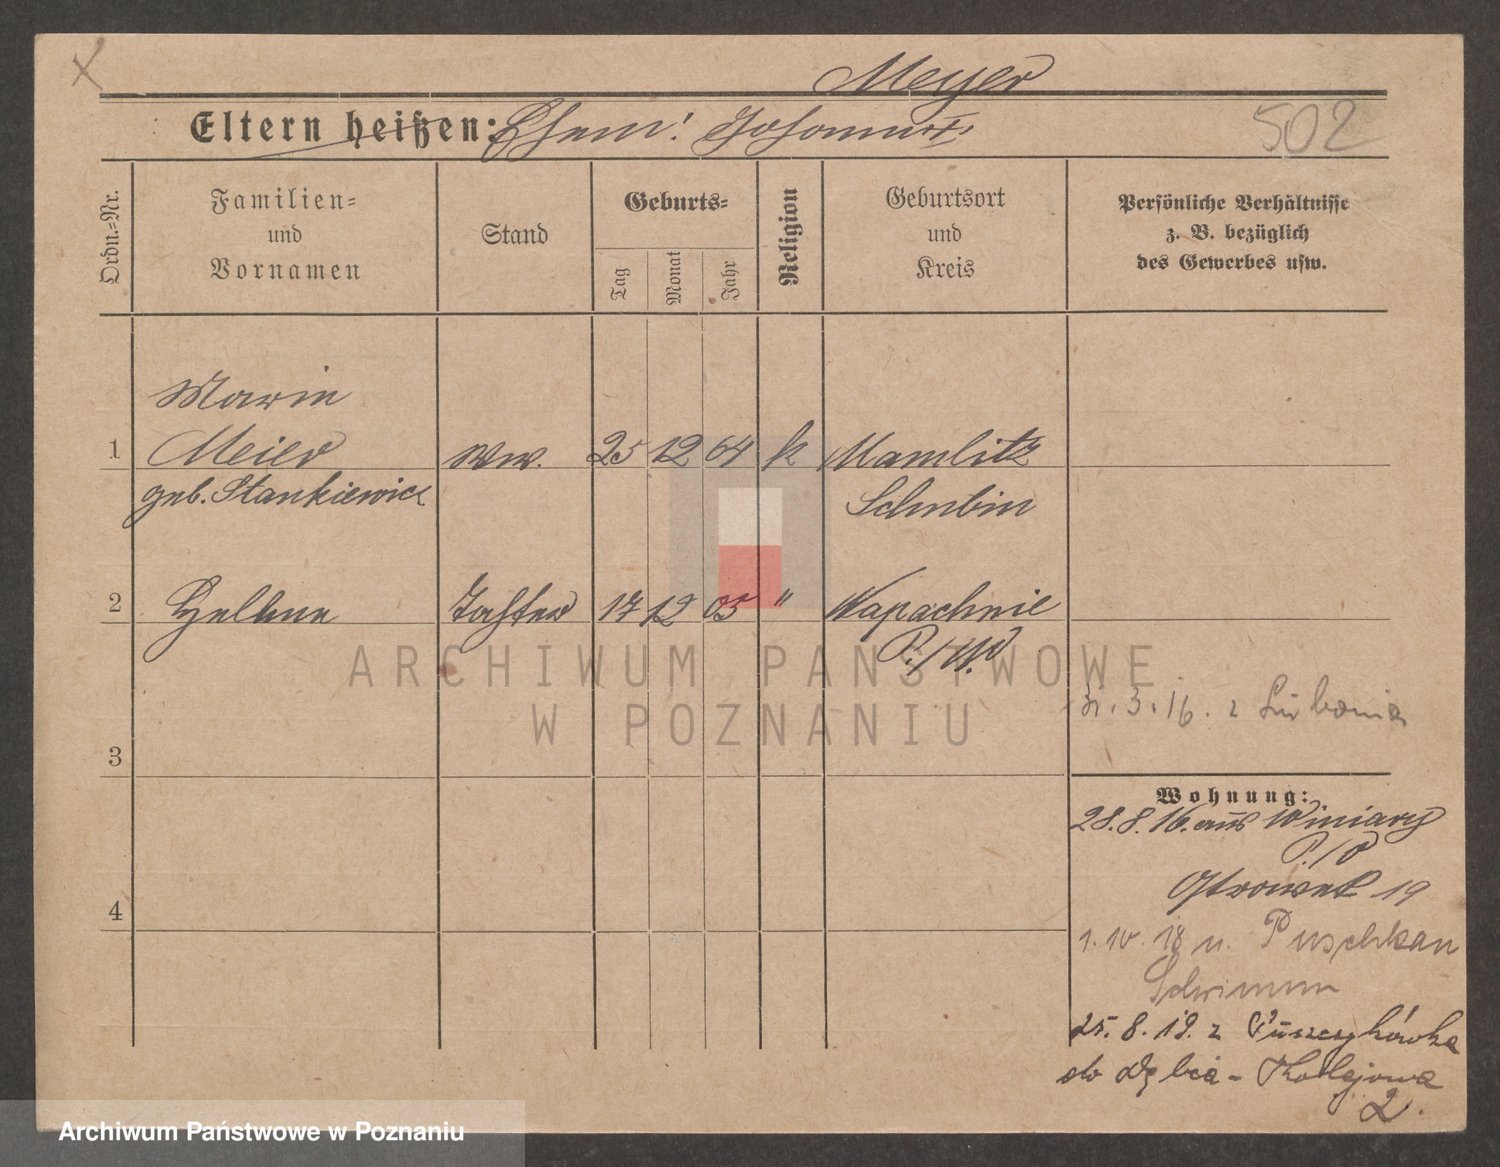 Meyer
Eltern heißen: Ehem: Johann
502
Ordn.-Nr.
Familien-
und
Vornamen
Stand
Geburts-
Tag
Monat
Jahr
Religion
Geburtsort
und
Kreis
Persönliche Verhältnisse
z. B. bezüglich
des Gewerbes usw.
Marie
1 Meier Ww. 25 12 64 k Mamlitz
geb. Stankiewicz Schubin
2 Helene Tochter 17 12 05 " Wapachnie
P./W.
31.3.16. z Lubonia
3
Wohnung:
28.8.16. aus Winiary
P./O
19
4
1.10.18 n. Puschkau
25.8.19. z Puszczykówka
do Dębca - Kolejowa
2.
ARCHIWUM PAŃSTWOWE
W POZNANIU
Archiwum Państwowe w Poznaniu